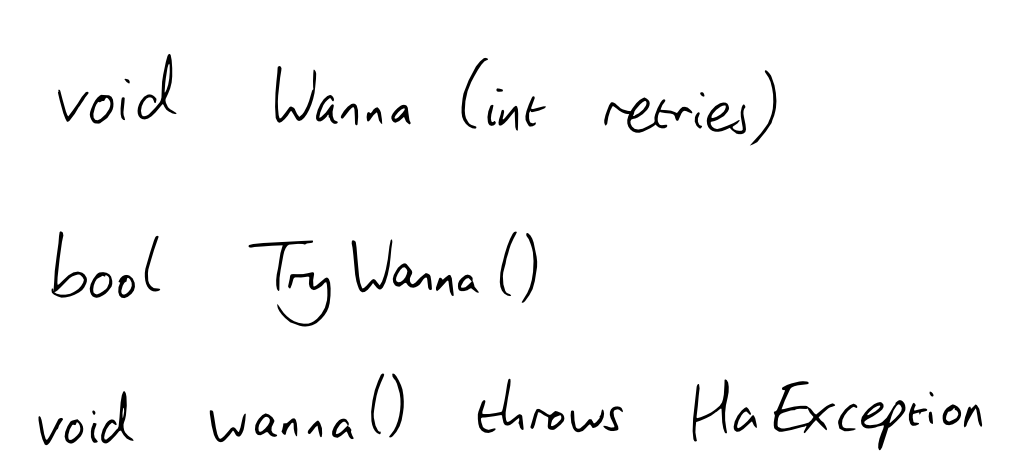 void Wanna (int retries)
bool TryWanna()
void wanna() throws HaException